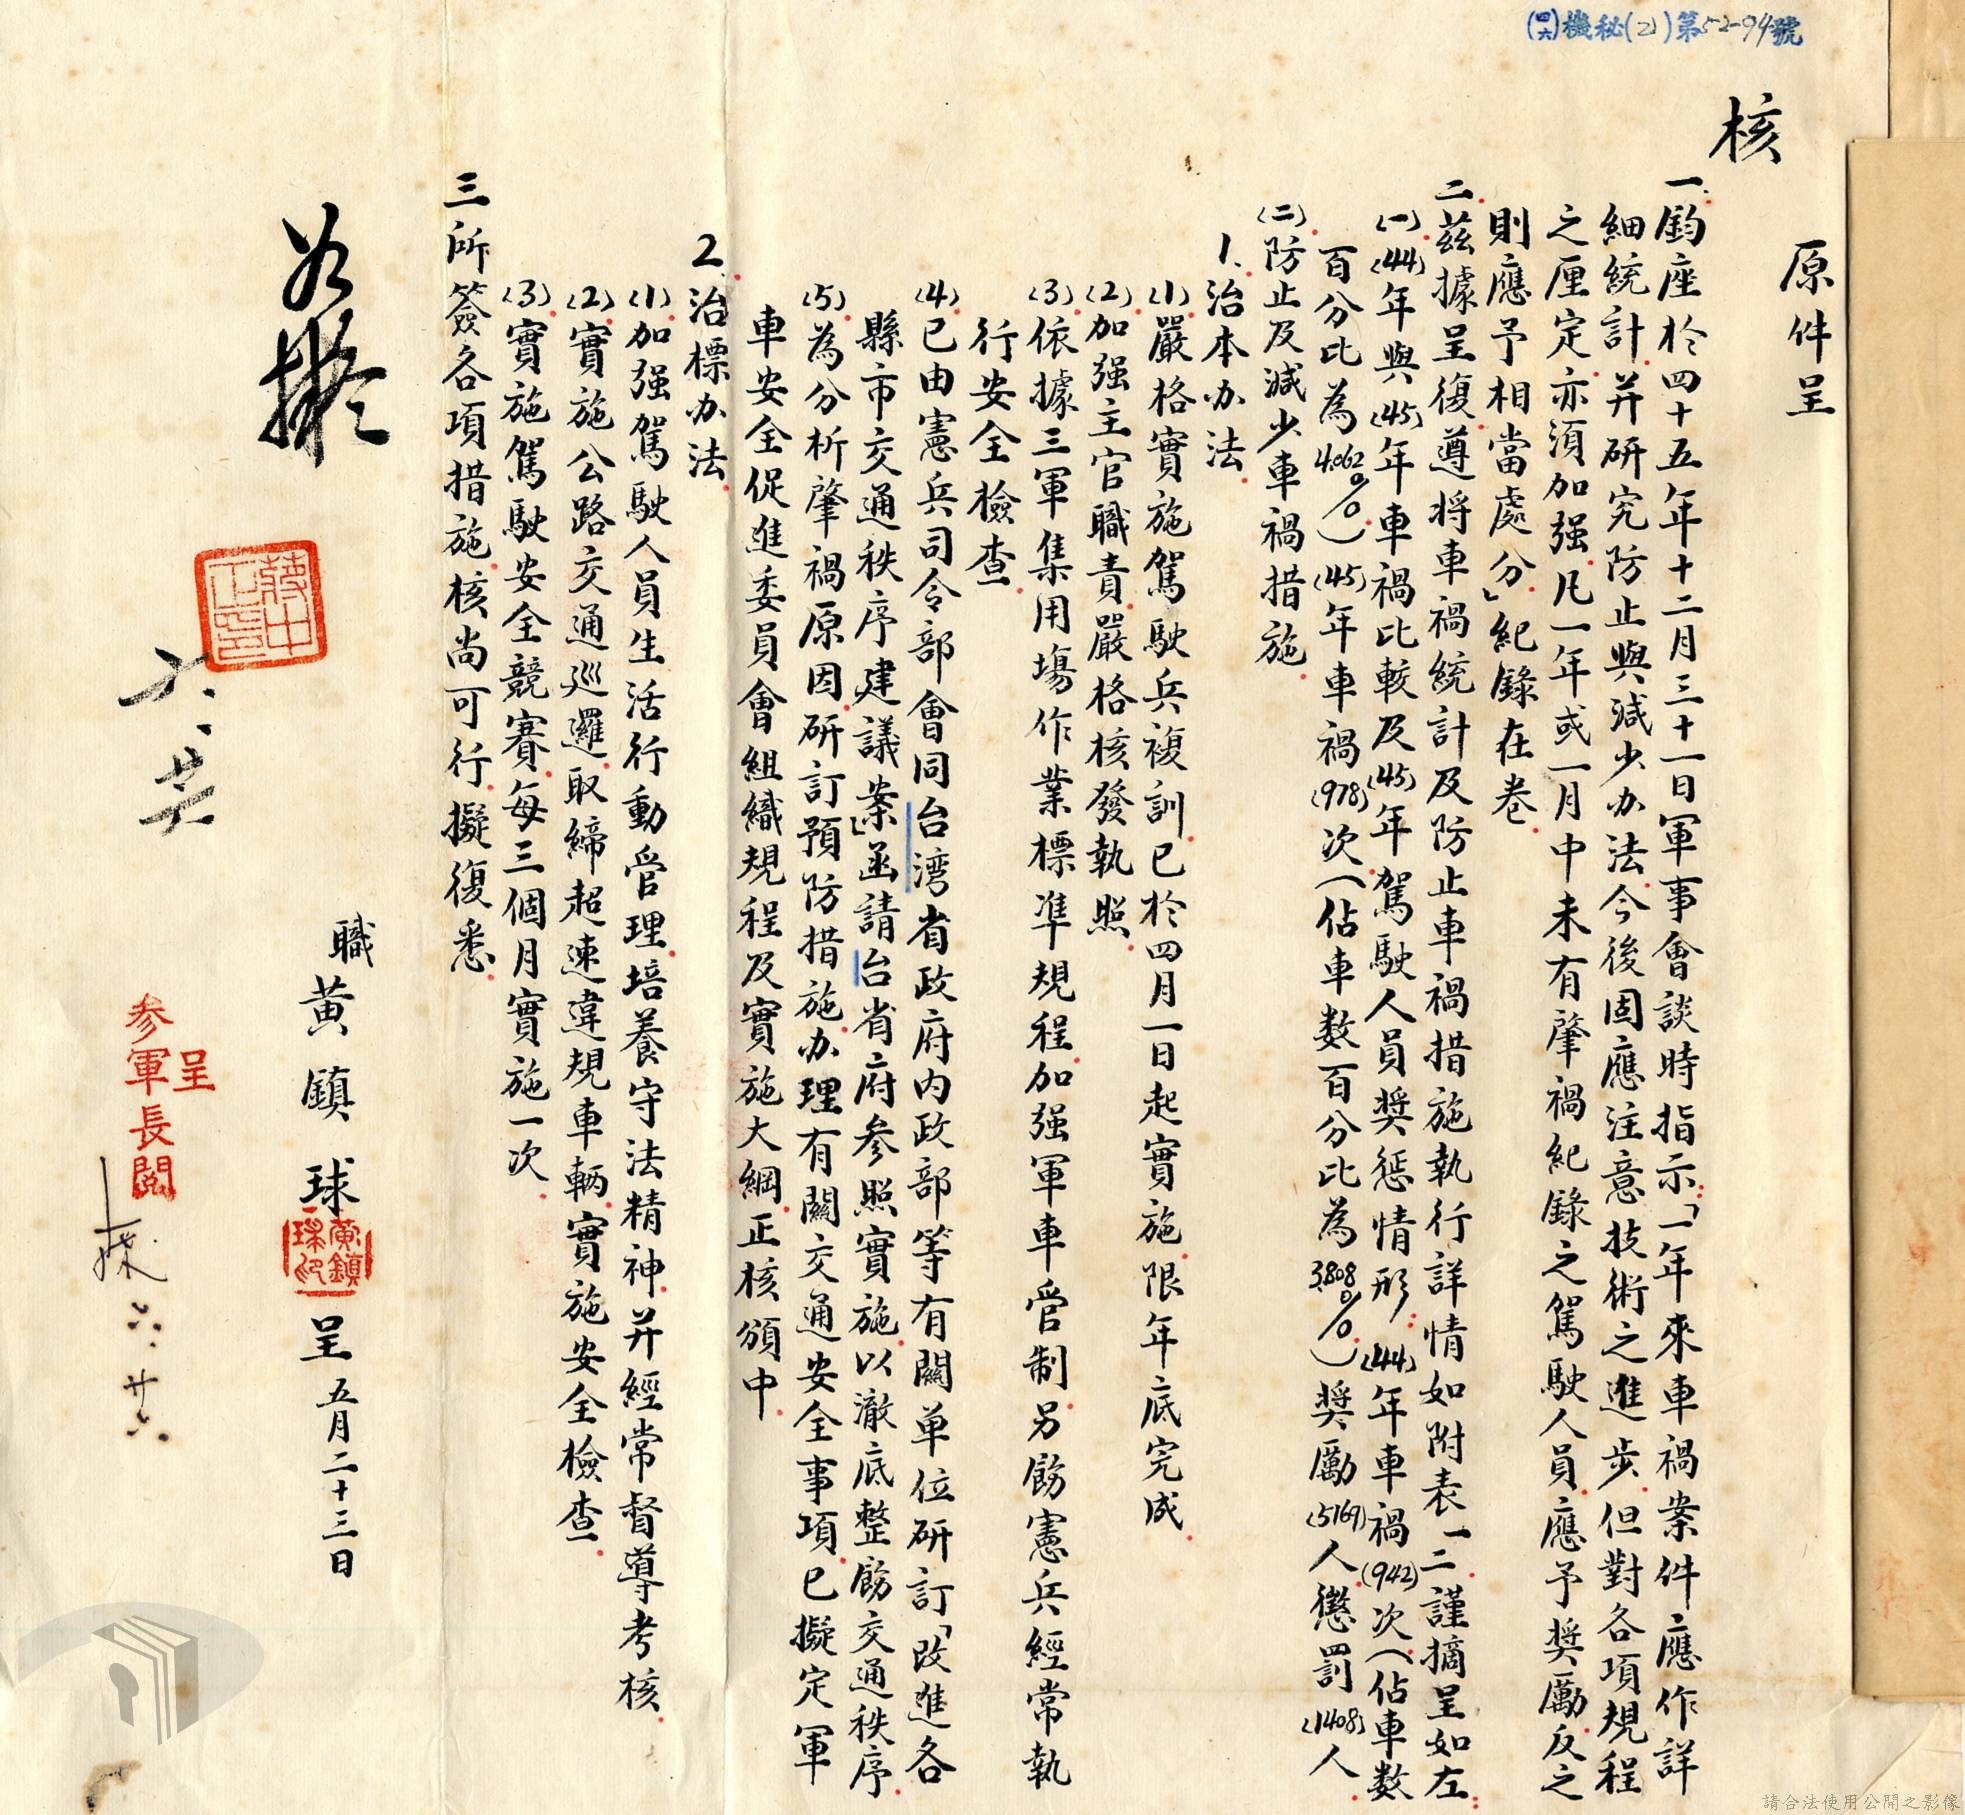 (四六)機秘(乙)第52-94號
核
原件呈
一、鈞座於四十五年十二月三十一日軍事會談時指示:「一年來車禍案件應作詳
細統計并研究防止與減少办法今後固應注意技術之進步但對各項規程
之厘定亦須加强凡一年或一月中未有肇禍紀錄之駕駛人員應予奬勵反之
則應予相當處分」紀錄在卷
二、茲據呈復遵將車禍統計及防止車禍措施執行詳情如附表一二謹摘呈如左:
(一)(44)年與(45)年車禍比較及(45)年駕駛人員奬懲情形:(44)年車禍(942)次(佔車数
百分比為4.062%)(45)年車禍(978)次(佔車数百分比為3.808%)奬勵(5169)人懲罰(1408)人
(二)防止及減少車禍措施
1、治本办法
(1)嚴格實施駕駛兵複訓已於四月一日起實施限年底完成
(2)加强主官職責嚴格核發執照
(3)依據三軍集用場作業標準規程加强軍車管制另飭憲兵經常執
行安全檢查
(4)已由憲兵司令部會同台湾省政府內政部等有關单位研訂「改進各
縣市交通秩序建議案」函請台省府参照實施以澈底整飭交通秩序
(5)為分析肇禍原因研訂預防措施办理有關交通安全事項已擬定軍
車安全促進委員會組織規程及實施大綱正核頒中
2、治標办法
(1)加强駕駛人員生活行動管理培養守法精神并經常督導考核
(2)實施公路交通巡邏取締超速違規車輛實施安全檢查
(3)實施駕駛安全競賽每三個月實施一次
三所簽各項措施核尚可行擬復悉
如擬
蔣中正印
六、廿六
職黃鎮球呈五月二十三日
黃鎮球印
呈
参軍長閱
六、廿六
請合法使用公開之影像